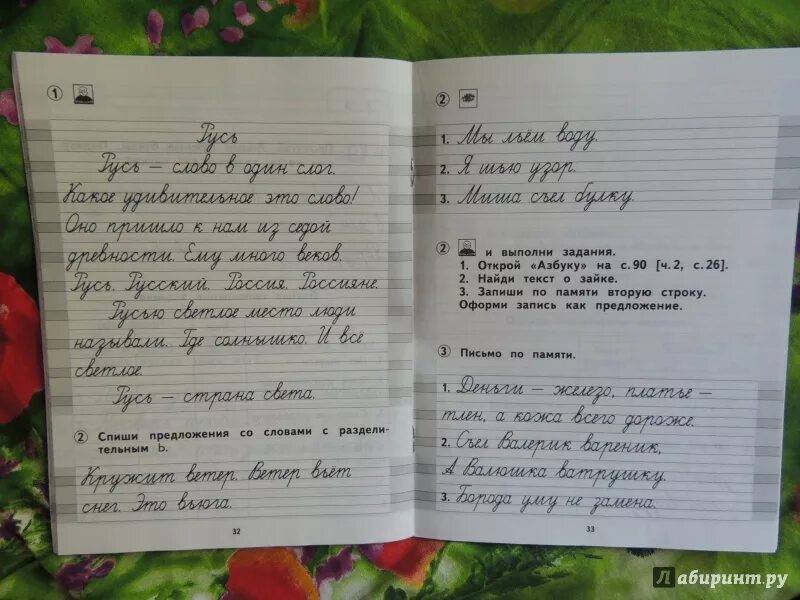 1
Русь
Русь – слово в один слог.
Какое удивительное это слово!
Оно пришло к нам из седой
древности. Ему много веков.
Русь. Русский. Россия. Россияне.
Русью светлое место люди
называли. Где солнышко. И всё
светлое.
Русь – страна света.
2 Спиши предложения со словами с раздели-
тельным Ь.
Кружит ветер. Ветер вьёт
снег. Это вьюга.
32
2
1. Мы льём воду.
2. Я шью узор.
3. Миша съел булку.
2 и выполни задания.
1. Открой «Азбуку» на с.90 [ч.2, с.26].
2. Найди текст о зайке.
3. Запиши по памяти вторую строку.
Оформи запись как предложение.
3 Письмо по памяти.
1. Деньги – железо, платье –
тлен, а кожа всего дороже.
2. Съел Валерик вареник,
А Валюшка ватрушку.
3. Борода уму не замена.
33
Лабиринт.ру